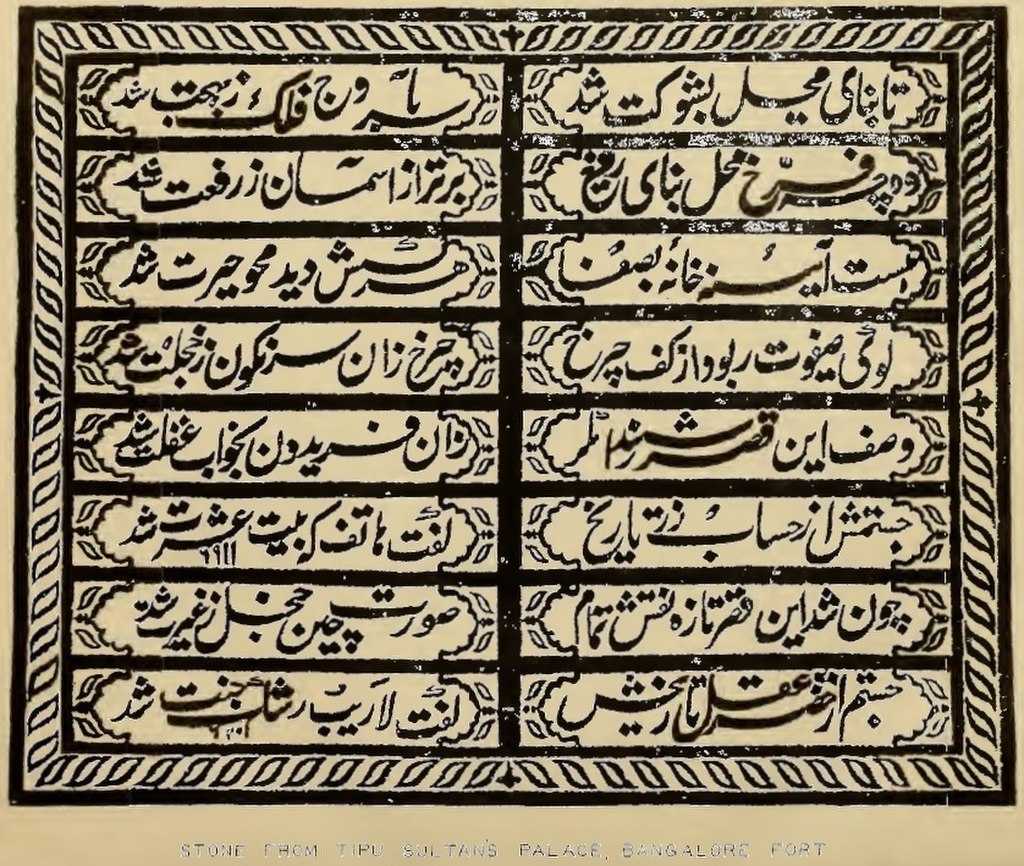 تا بنای محل بشوکت شد سر بآوج فلک ز بهجت شد
وه چه فرّخ محل بنای رفیع برتر از آسمان ز رفعت شد
هست آئینه خانهٔ بصفا هر کسش دید محو حیرت شد
گوئی صفوت ربود از کف چرخ چرخ زان سرنگون ز خجلت شد
وصف این قصر شنید مگر زان فریدون بخواب غفلت شد
جستمش از حساب زر تاریخ گفت هاتف که بیت عشرت شد ١١٩٦
چون شد این قصر تازه نقش تمام صورت چین خجل ز غیرت شد
جستم از خضر عقل تاریخش گفت لاریب رشک جنت شد
STONE FROM TIPU SULTAN'S PALACE, BANGALORE FORT